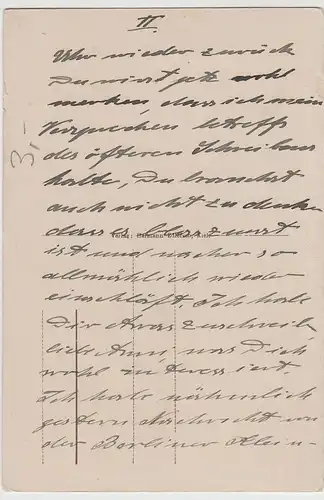 II.
Uhr wieder zurück
Du wirst jetz wohl
merken, dass ich mein
Versprechen betreff
des öfteren Schreibens
halte, Du brauchst
auch nicht zu denken
dass es blos zuerst
ist und nacher so
allmählich wieder
einschläft. Ich hab
Dir etwas zuschreib
was Dich
wohl interessiert.
Ich habe nähmlich
gestern Nachricht von
der Berliner Klein-
3,-
Verlag: Hermann